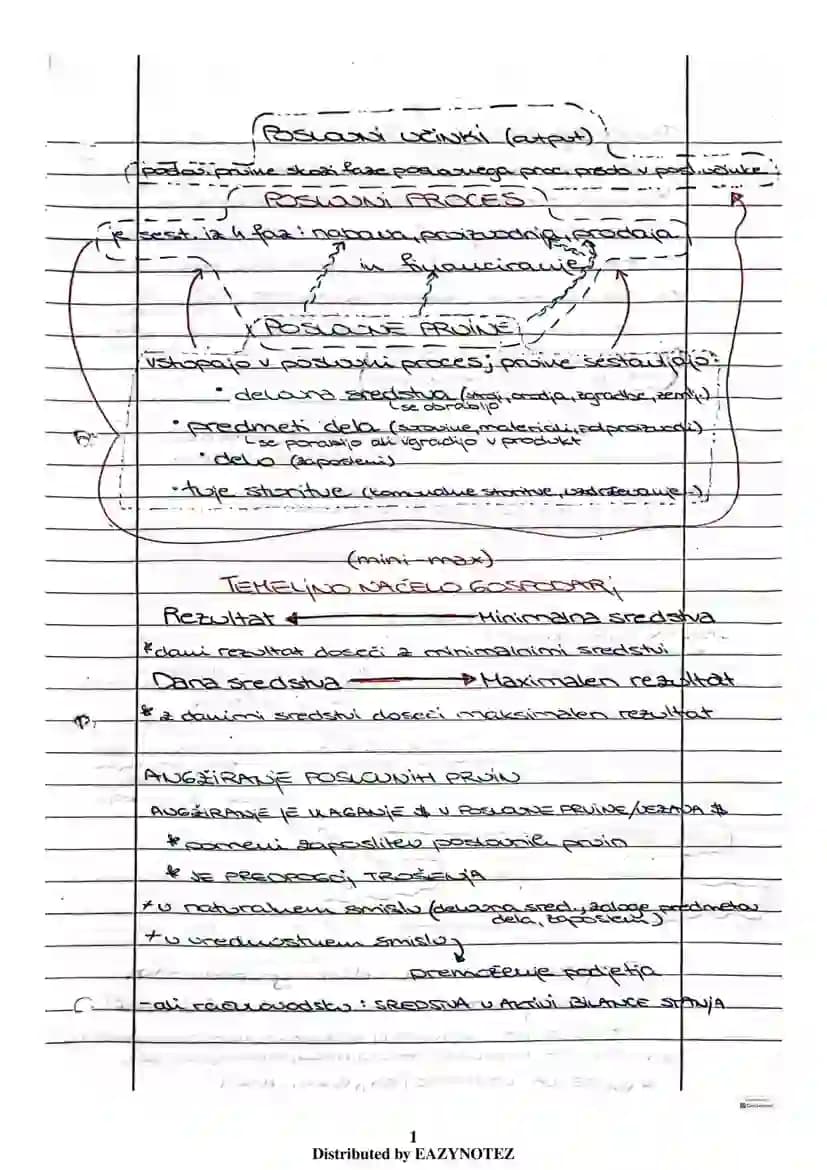 POSLOVNI UČINKI (output)
poslov. prvine skozi faze poslovnega proc. predo v posl. učinke
POSLOVNI PROCES
je sest. iz 4 faz: nabava, proizvodnja, prodaja
in financiranje
POSLOVNE PRVINE
vstopajo v poslovni proces; prvine sestavljajo:
• delovna sredstva (stroji, orodja, zgradbe, zemlj.)
se obrabijo
• predmeti dela (surovine, materiali, polproizvodi)
se porabijo ali vgradijo v produkt
• delo (zaposleni)
• tuje storitve (komunalne storitve, vzdrževanje..)
(mini-max)
TEMELJNO NAČELO GOSPODARJ
Rezultat Minimalna sredstva
*dani rezultat doseči z minimalnimi sredstvi
Dana sredstva Maximalen rezultat
* z danimi sredstvi doseči maksimalen rezultat
ANGŽIRANJE POSLOVNIH PRVIN
ANGŽIRANJE JE VLAGANJE $ V POSLOVNE PRVINE/VEZAVA $
* pomeni zaposlitev poslovnih prvin
* JE PREDPOGOJ TROŠENJA
+ v naturalnem smislu (delovna sred., zaloge predmetov
dela, zaposleni)
+ v vrednostnem smislu
premoženje podjetja
- ali računovodsko: SREDSTVA V AKTIVI BILANCE STANJA
1
Distributed by EAZYNOTEZ